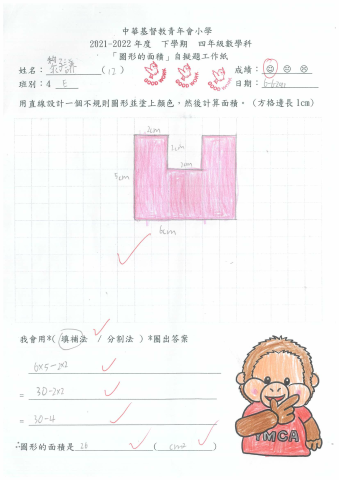 中華基督教青年會小學
2021-2022 年度 下學期 四年級數學科
「圖形的面積」自擬題工作紙
姓名： (17) GOOD WORK GOOD WORK GOOD WORK 成績：
班別：4 E 日期：
用直線設計一個不規則圖形並塗上顏色，然後計算面積。(方格邊長 1cm)
2cm
2cm
2cm
5cm
6cm
我會用*( 填補法 / 分割法 ) *圈出答案
6×5-2×2
= 30-2×2
= 30-4
∴圖形的面積是 26 ( cm2 )
YMCA